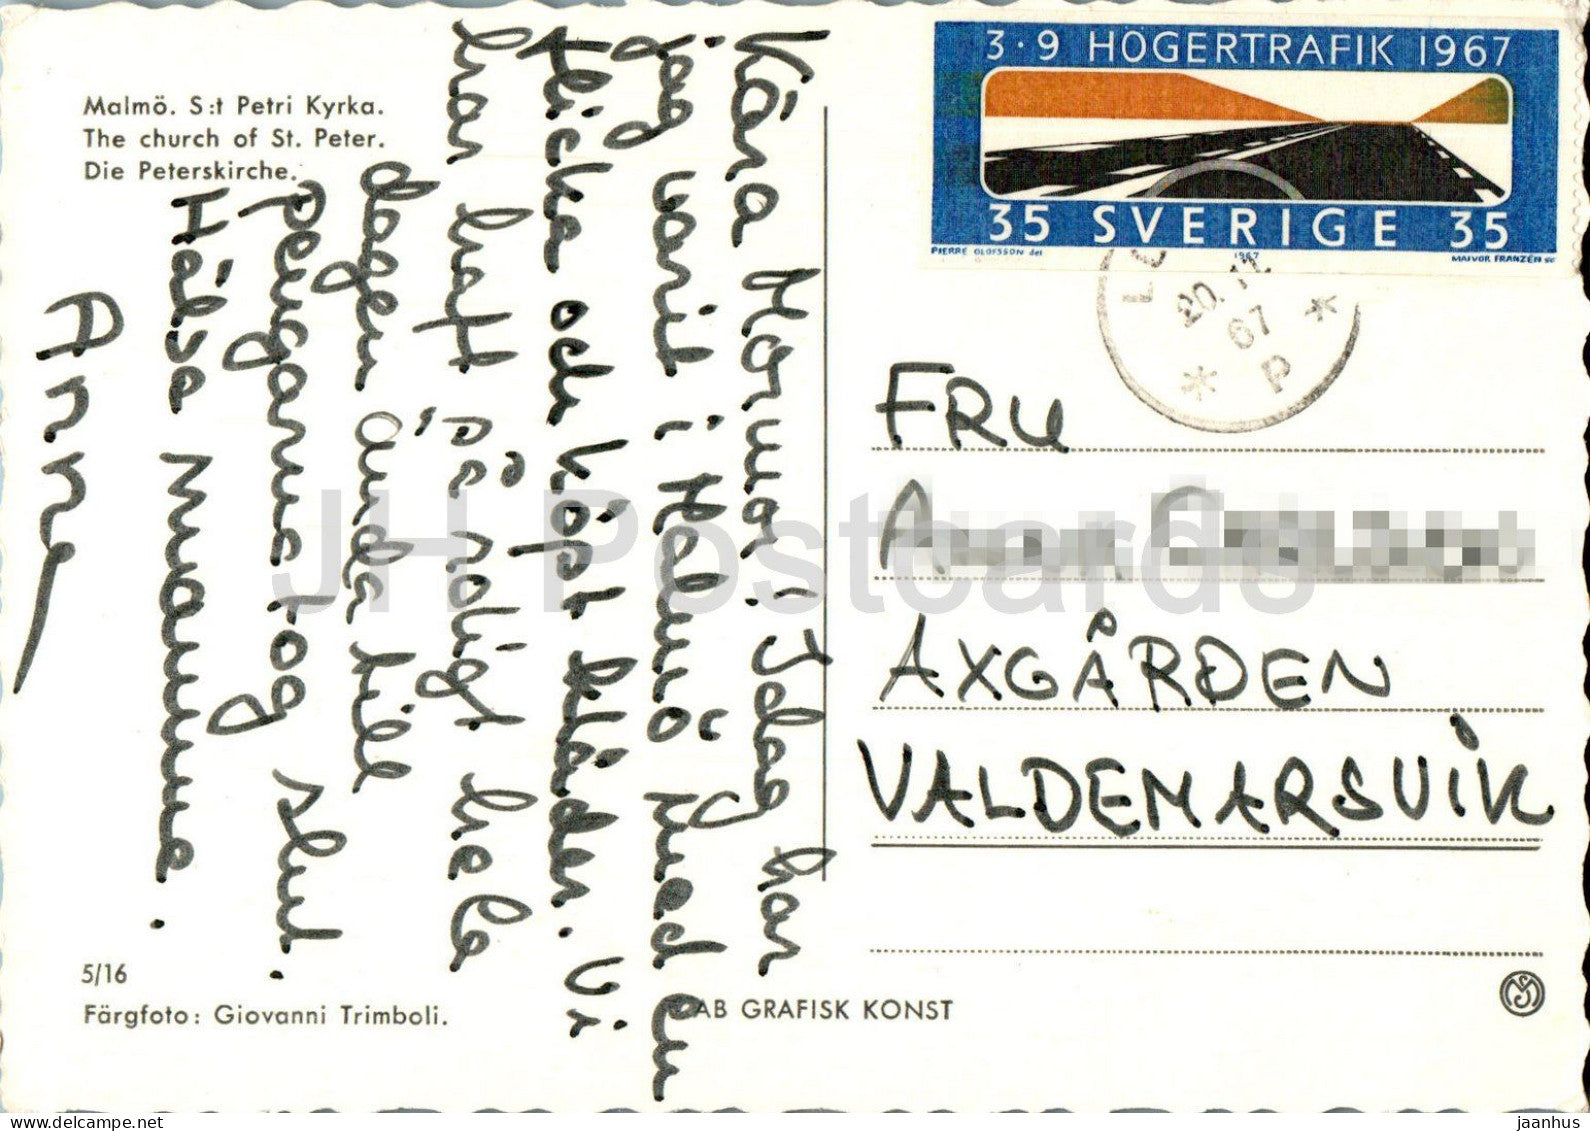 Malmö. S:t Petri Kyrka.
The church of St. Peter.
Die Peterskirche.
Kära Mormor! Idag har
jag varit i Malmö med en
flicka och köpt kläder. Vi
har haft så roligt hela
dagen ända till
pengarna tog slut.
Hälsa mamma.
Anne
5/16
Färgfoto: Giovanni Trimboli.
AB GRAFISK KONST
3·9 HÖGERTRAFIK 1967
35 SVERIGE 35
PIERRE OLOFSSON del
1967
MAJVOR FRANZÉN sc
L
20. 11
67
* P *
FRU
AXGÅRDEN
VALDEMARSVIK
JH Postcards
delcampe.net
jaanhus